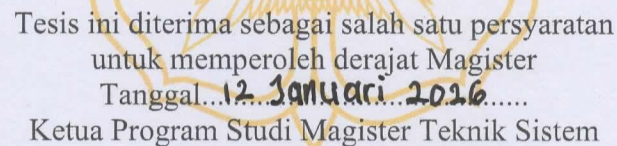 Tesis ini diterima sebagai salah satu persyaratan
untuk memperoleh derajat Magister
Tanggal...12 Januari 2026......
Ketua Program Studi Magister Teknik Sistem